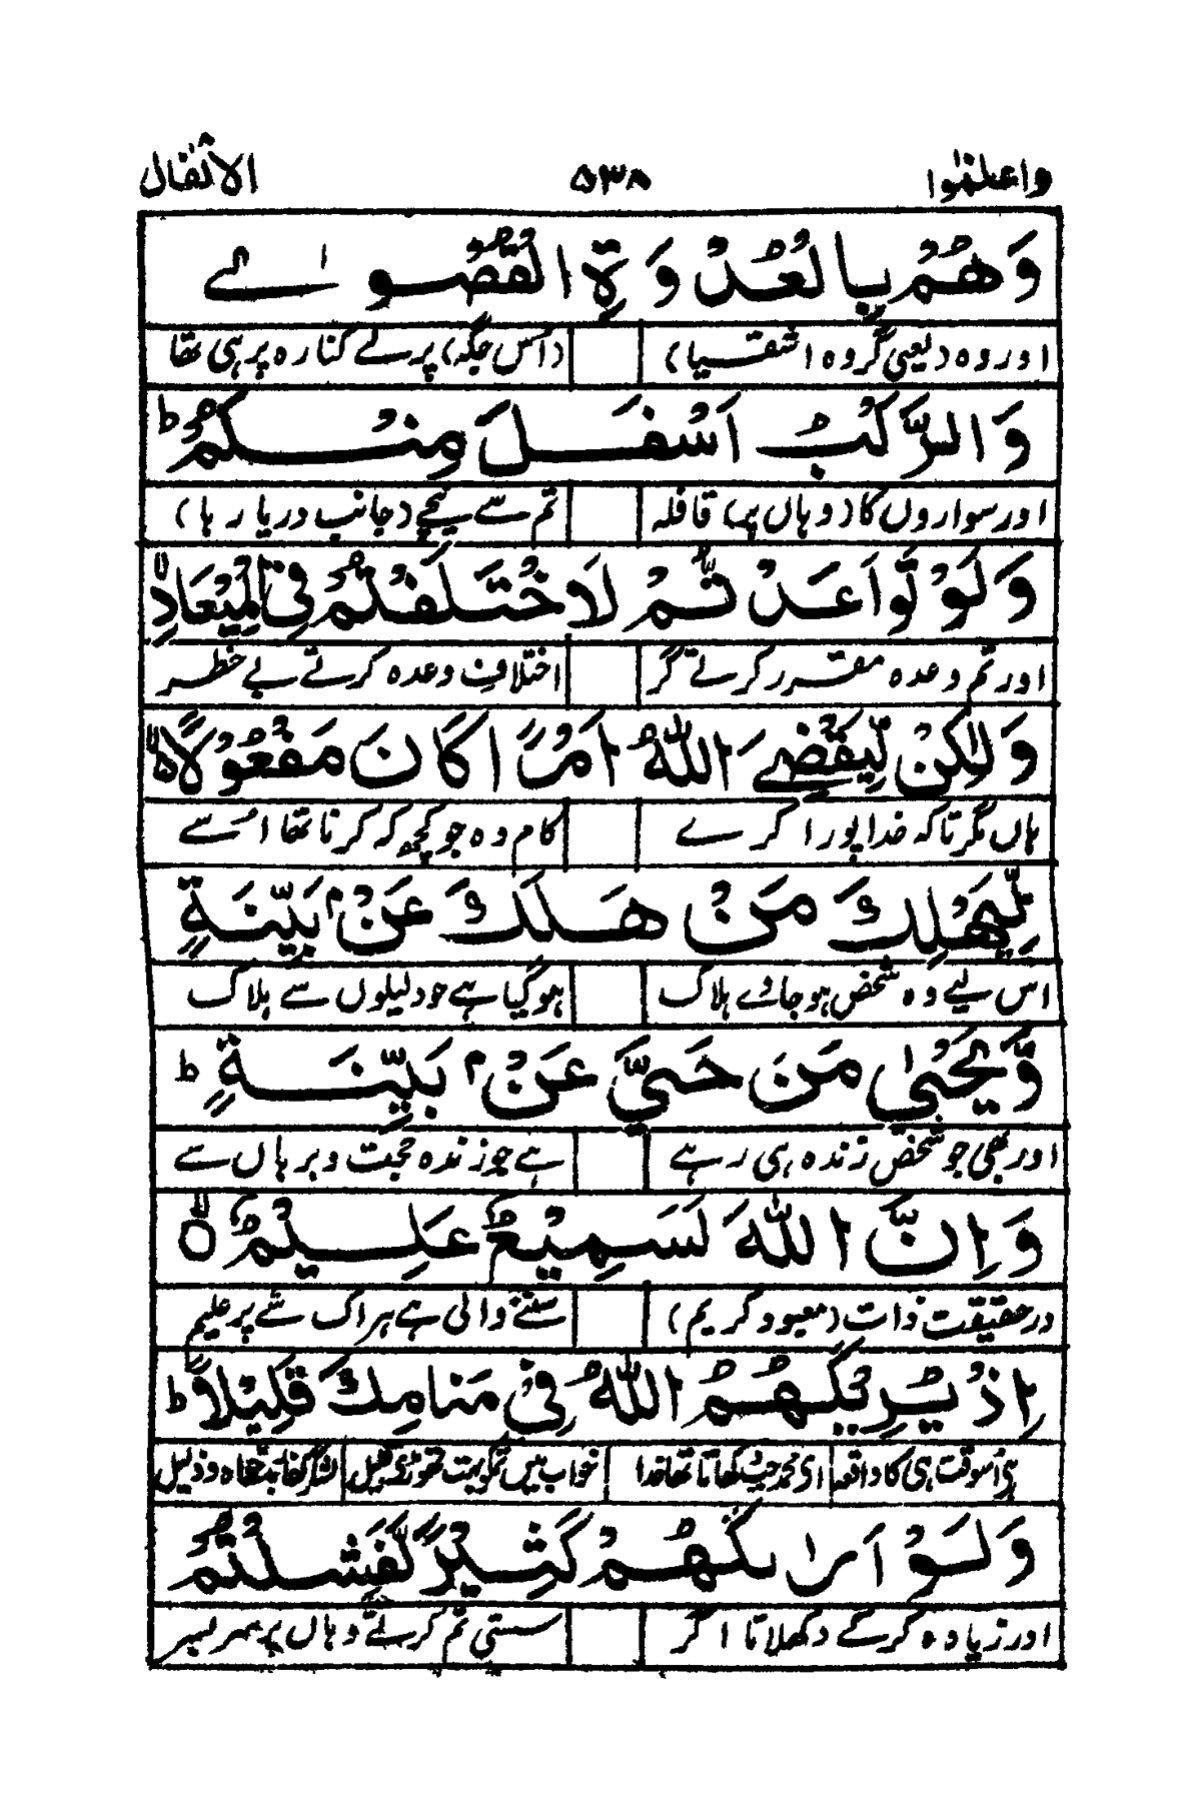 واعلموا ۵۳۸ الانفال
وَهُمْ بِالْعُدْوَةِ الْقُصْوٰے
اور وہ (یعنی گروہ اشقیا) (اُس جگہ) پرلے کنارہ پر ہی تھا
وَالرَّكْبُ اَسْفَلَ مِنْكُمْ ؕ
اور سواروں کا (وہاں پر) قافلہ تم سے نیچے (جانب دریا رہا)
وَلَوْ تَّوَاعَدْ تُّمْ لَاخْتَلَفْتُمْ فِی الْمِیْعٰدِ ۙ
اور تم وعدہ مقرر کرتے گر اختلافِ وعدہ کرتے بے خطر
وَلٰكِنْ لِّیَقْضِےَ اللّٰهُ اَمْرًا كَانَ مَفْعُوْلًا ۙ
ہاں مگر تاکہ خدا پورا کرے کام وہ جو کچھ کہ کرنا تھا اُسے
لِّیَهْلِكَ مَنْ هَلَكَ عَنْۢ بَیِّنَةٍ
اس لیے وہ شخص ہو جاوے ہلاک ہو گیا ہے جو دلیلوں سے ہلاک
وَّیَحْیٰی مَنْ حَیَّ عَنْۢ بَیِّنَةٍ ؕ
اور بھی جو شخص زندہ ہی رہے ہے جو زندہ حجت و برہاں سے
وَاِنَّ اللّٰهَ لَسَمِیْعٌ عَلِیْمٌ ۙ
درحقیقت ذات (معبود کریم) سننے والی ہے ہر اک شے پر علیم
اِذْ یُرِیْكَهُمُ اللّٰهُ فِیْ مَنَامِكَ قَلِیْلًا ؕ
ہی اُسوقت ہی کا واقعہ ای محمد جب دکھاتا تھا خدا خواب میں تمکو بہت تھوڑی قلیل لشکر کفار بدخواہ و ذلیل
وَلَوْ اَرٰىكَهُمْ كَثِیْرًا لَّفَشِلْتُمْ
اور زیادہ کرکے دکھلاتا اگر سستی تم کرتے وہاں پر سربسر